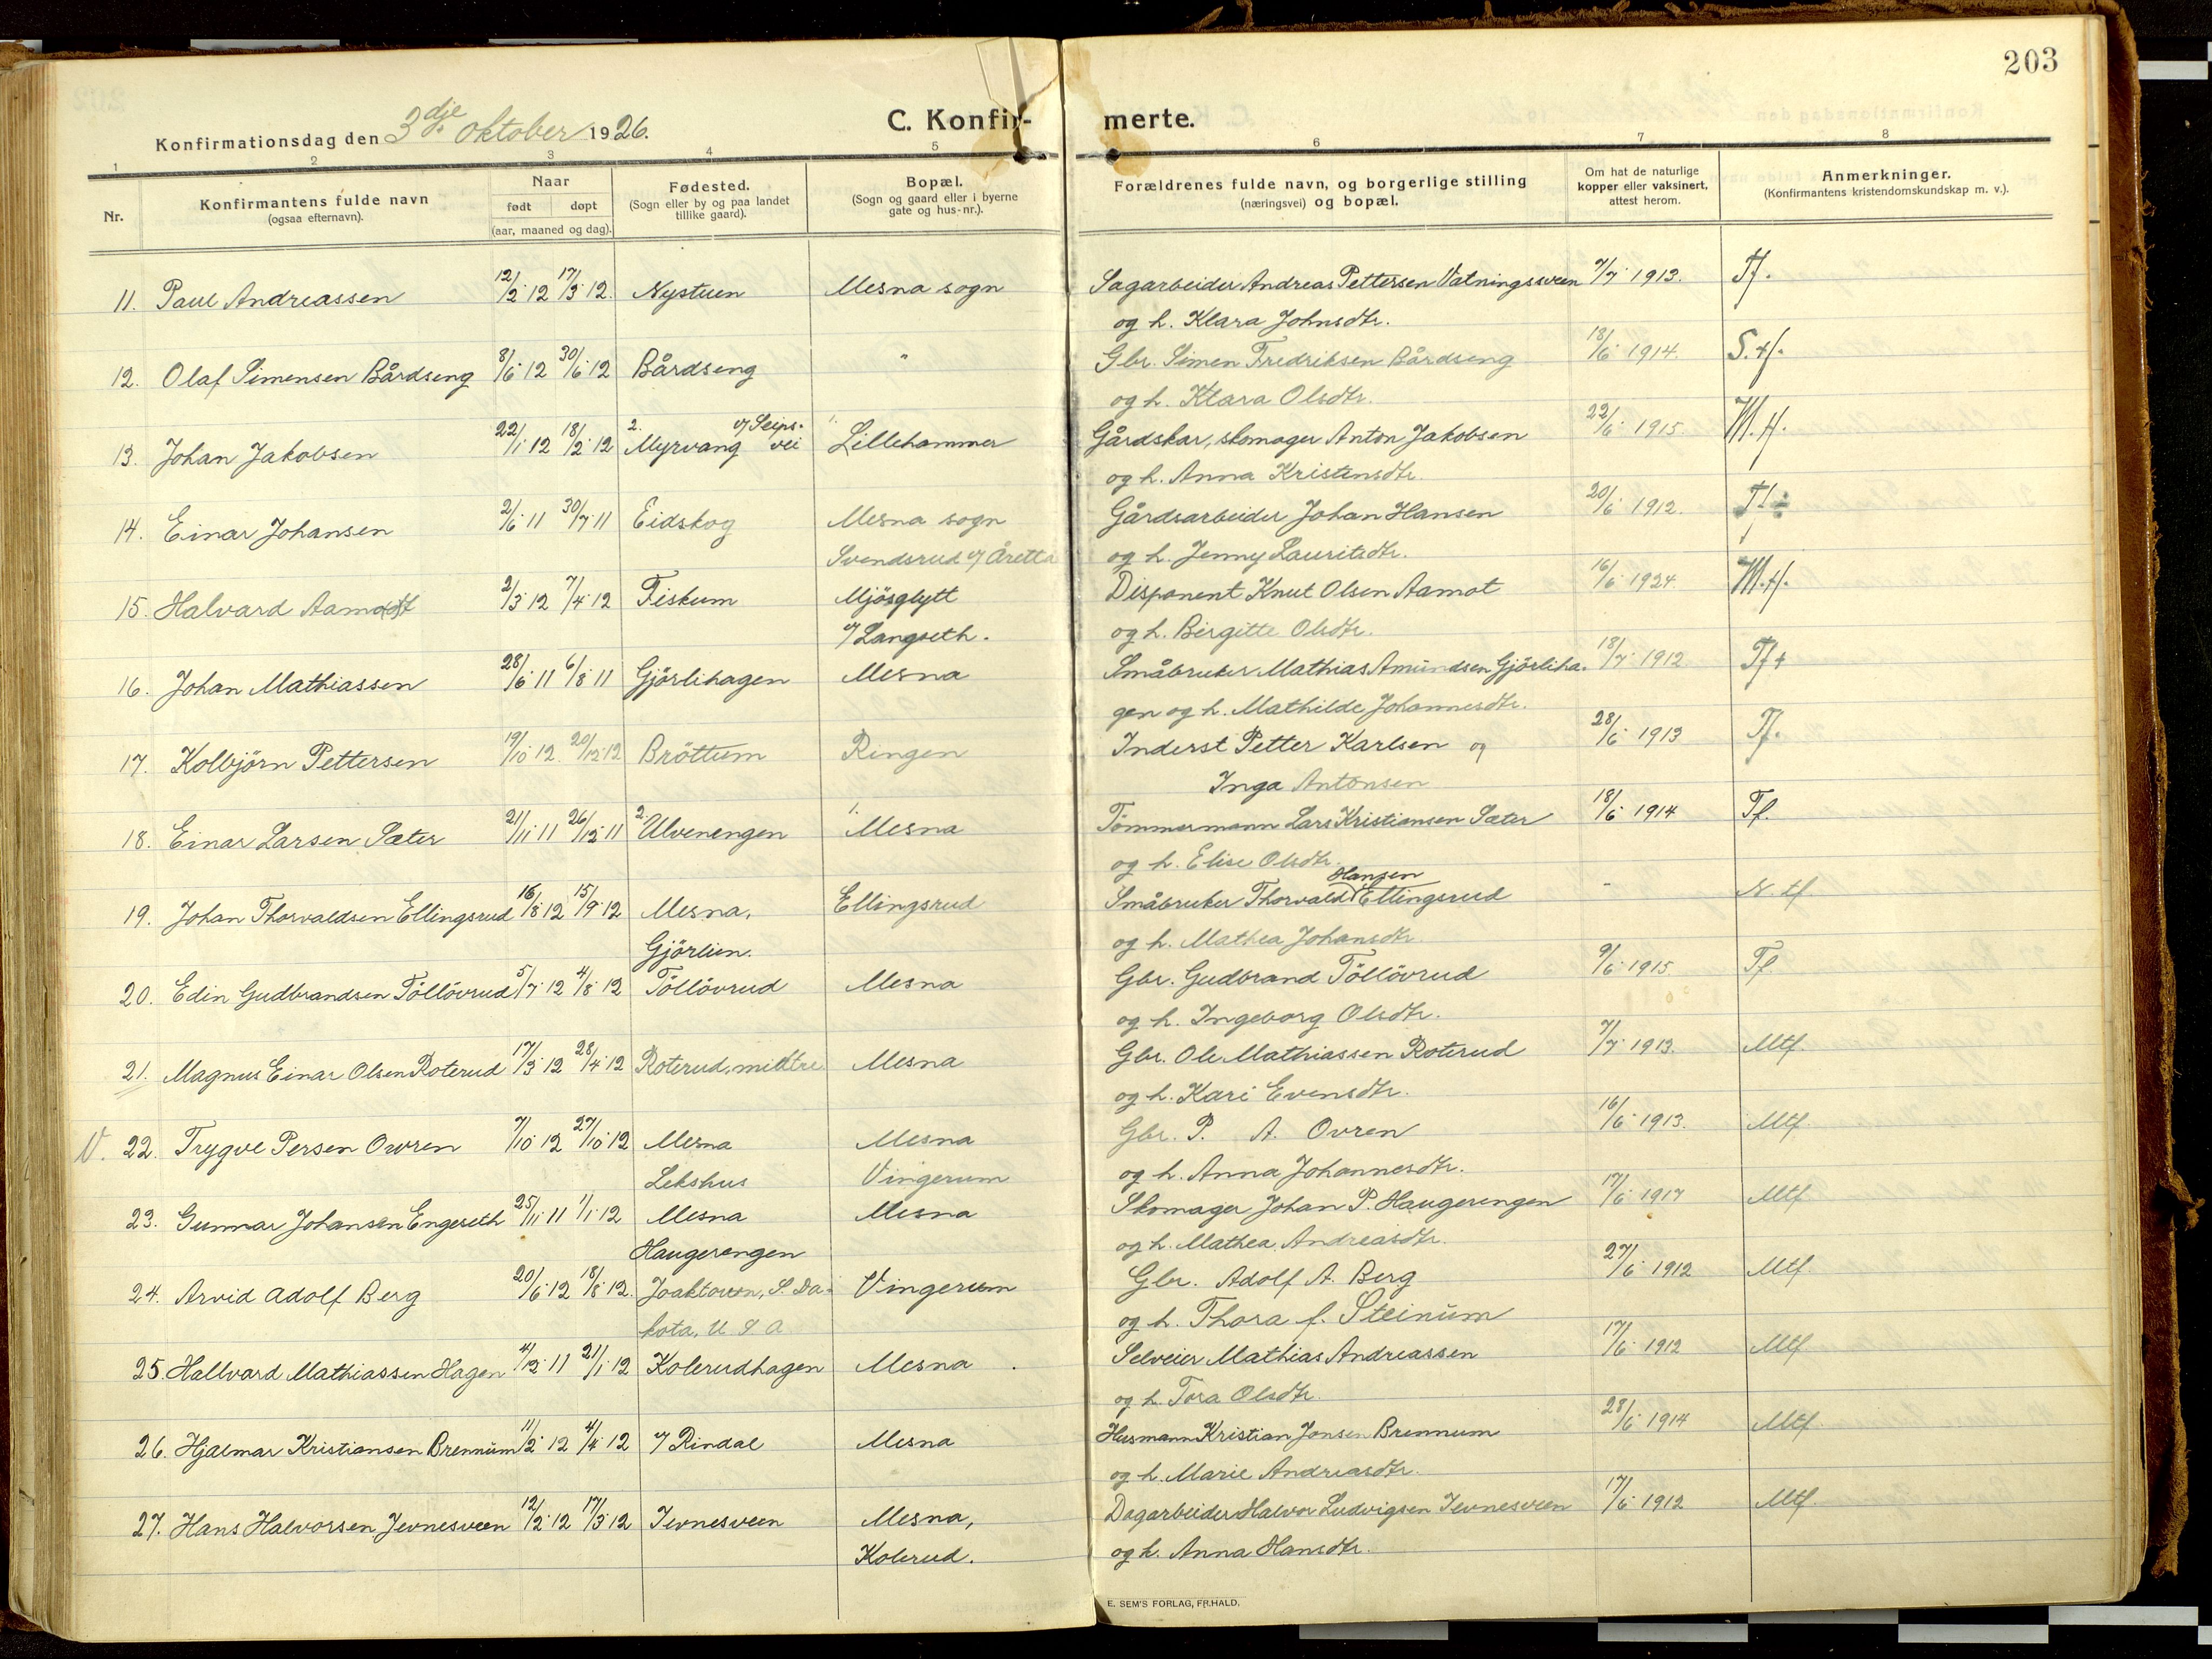 203
Konfirmationsdag den 3dje oktober 1926.
C. Konfir-
merte.
1 2 3 4 5 6 7 8
Nr.
Konfirmantens fulde navn
(ogsaa efternavn).
Naar
født døpt
(aar, maaned og dag).
Fødested.
(Sogn eller by og paa landet
tillike gaard).
Bopæl.
(Sogn og gaard eller i byerne
gate og hus-nr.).
Forældrenes fulde navn, og borgerlige stilling
(næringsvei) og bopæl.
Om hat de naturlige
kopper eller vaksinert,
attest herom.
Anmerkninger.
(Konfirmantens kristendomskundskap m. v.).
11. Paul Andreassen 12/2 12 17/3 12. Nystuen Mesna sogn Sagarbeider Andreas Pettersen Vatningssveen 7/7 1913. Tf.
og h. Klara Johnsdtr.
12. Olaf Simensen Bårdseng 8/6 12 30/6 12 Bårdseng " Gbr. Simen Fredriksen Bårdseng 18/6 1914. S. tf.
og h. Klara Olsdtr.
13. Johan Jakobsen 22/1 12 18/2 12 2. Myrvang v/ Seips. vei 1. Lillehammer Gårdskar, skomager Anton Jakobsen 22/6 1915. M. tf.
og h. Anna Kristensdtr.
14. Einar Johansen 2/6 11 30/7 11 Eidskog Mesna sogn Gårdsarbeider Johan Hansen 20/6 1912.
Svendsrud v/ Åretta og h. Jenny Lauritsdtr.
15. Halvard Aamodt 2/3 12 7/4 12 Fiskum Mjösglytt Disponent Knut Olsen Aamot 16/6 1924. M. tf.
v/ Langseth. og h. Birgitte Olsdtr.
16. Johan Mathiassen 28/6 11 6/8 11 Gjörlihagen Mesna Småbruker Mathias Amundsen Gjörliha- 18/7 1912 Tf +
gen og h. Mathilde Johannesdtr.
17. Kolbjörn Pettersen 19/10 12. 20/12 12 Bröttum Ringen Inderst Petter Karlsen og 28/6 1913 Tf.
Inga Antonsen
18. Einar Larsen Sæter 21/11 11 26/12 11 2. Ulvenengen 1. Mesna Tömmermann Lars Kristiansen Sæter 18/6 1914 Tf.
og h. Elise Olsdtr.
Hansen
19. Johan Thorvaldsen Ellingsrud 16/8 12 15/9 12 Mesna, Ellingsrud Småbruker Thorvald Ellingsrud - N. tf
Gjörlien. og h. Mathea Johansdtr.
20. Edin Gudbrandsen Töllövrud 5/7 12 4/8 12 Töllövrud Mesna Gbr. Gudbrand Töllövrud 9/6 1915 Tf
og h. Ingeborg Olsdtr.
21. Magnus Einar Olsen Roterud 17/3 12 28/4 12 Roterud, midtre Mesna Gbr. Ole Mathiassen Roterud 7/7 1913. Mtf.
og h. Kari Evensdtr.
V. 22. Trygve Persen Owren 7/10 12 27/10 12 Mesna Mesna Gbr. P. A. Ovren 16/6 1913. Mtf.
Lekshus Vingerum og h. Anna Johannesdtr.
23. Gunnar Johansen Engeseth 25/11 11 1/1 12 Mesna Mesna Skomager Johan P. Haugerengen 17/6 1917 Mtf
Haugerengen og h. Mathea Andreasdtr.
24. Arvid Adolf Berg 20/6 12 18/8 12. Joaktown, S. Da- Vingerum Gbr. Adolf A. Berg 27/6 1912 Mtf.
kota, U S A og h. Thora f. Steinum
25. Hallvard Mathiassen Hagen 4/12 11 21/1 12 Kolerudhagen Mesna Selveier Mathias Andreassen 17/6 1912 Mtf
og h. Tora Olsdtr.
26. Hjalmar Kristiansen Brennum 11/2 12 4/4 12 v/ Rindal Mesna Husmann Kristian Jonsen Brennum 28/6 1914 Mtf.
og h. Marie Andreasdtr.
27. Hans Halvorsen Jevnesveen 12/2 12 17/3 12 Jevnesveen Mesna, Dagarbeider Halvor Ludvigsen Jevnesveen 17/6 1912 Mtf.
Kolerud. og h. Anna Hansdtr.
E. SEM'S FORLAG, FR.HALD.